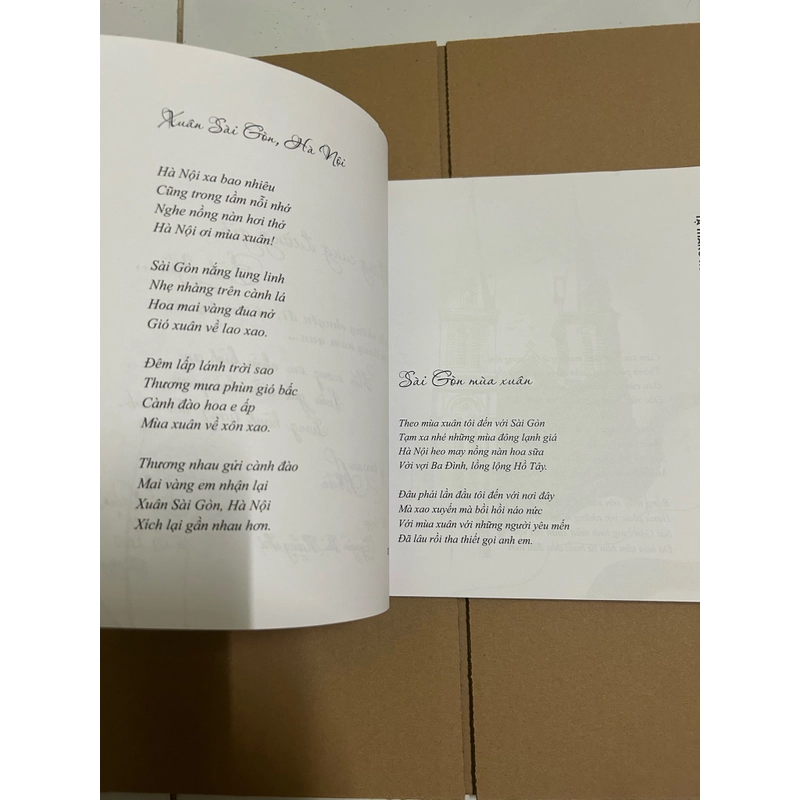 Xuân Sài Gòn, Hà Nội
Hà Nội xa bao nhiêu
Cũng trong tầm nỗi nhớ
Nghe nồng nàn hơi thở
Hà Nội ơi mùa xuân!
Sài Gòn nắng lung linh
Nhẹ nhàng trên cành lá
Hoa mai vàng đua nở
Gió xuân về lao xao.
Đêm lấp lánh trời sao
Thương mưa phùn gió bấc
Cành đào hoa e ấp
Mùa xuân về xôn xao.
Thương nhau gửi cành đào
Mai vàng em nhận lại
Xuân Sài Gòn, Hà Nội
Xích lại gần nhau hơn.
Sài Gòn mùa xuân
Theo mùa xuân tôi đến với Sài Gòn
Tạm xa nhé những mùa đông lạnh giá
Hà Nội heo may nồng nàn hoa sữa
Vời vợi Ba Đình, lồng lộng Hồ Tây.
Đâu phải lần đầu tôi đến với nơi đây
Mà xao xuyến mà bồi hồi náo nức
Với mùa xuân với những người yêu mến
Đã lâu rồi tha thiết gọi anh em.